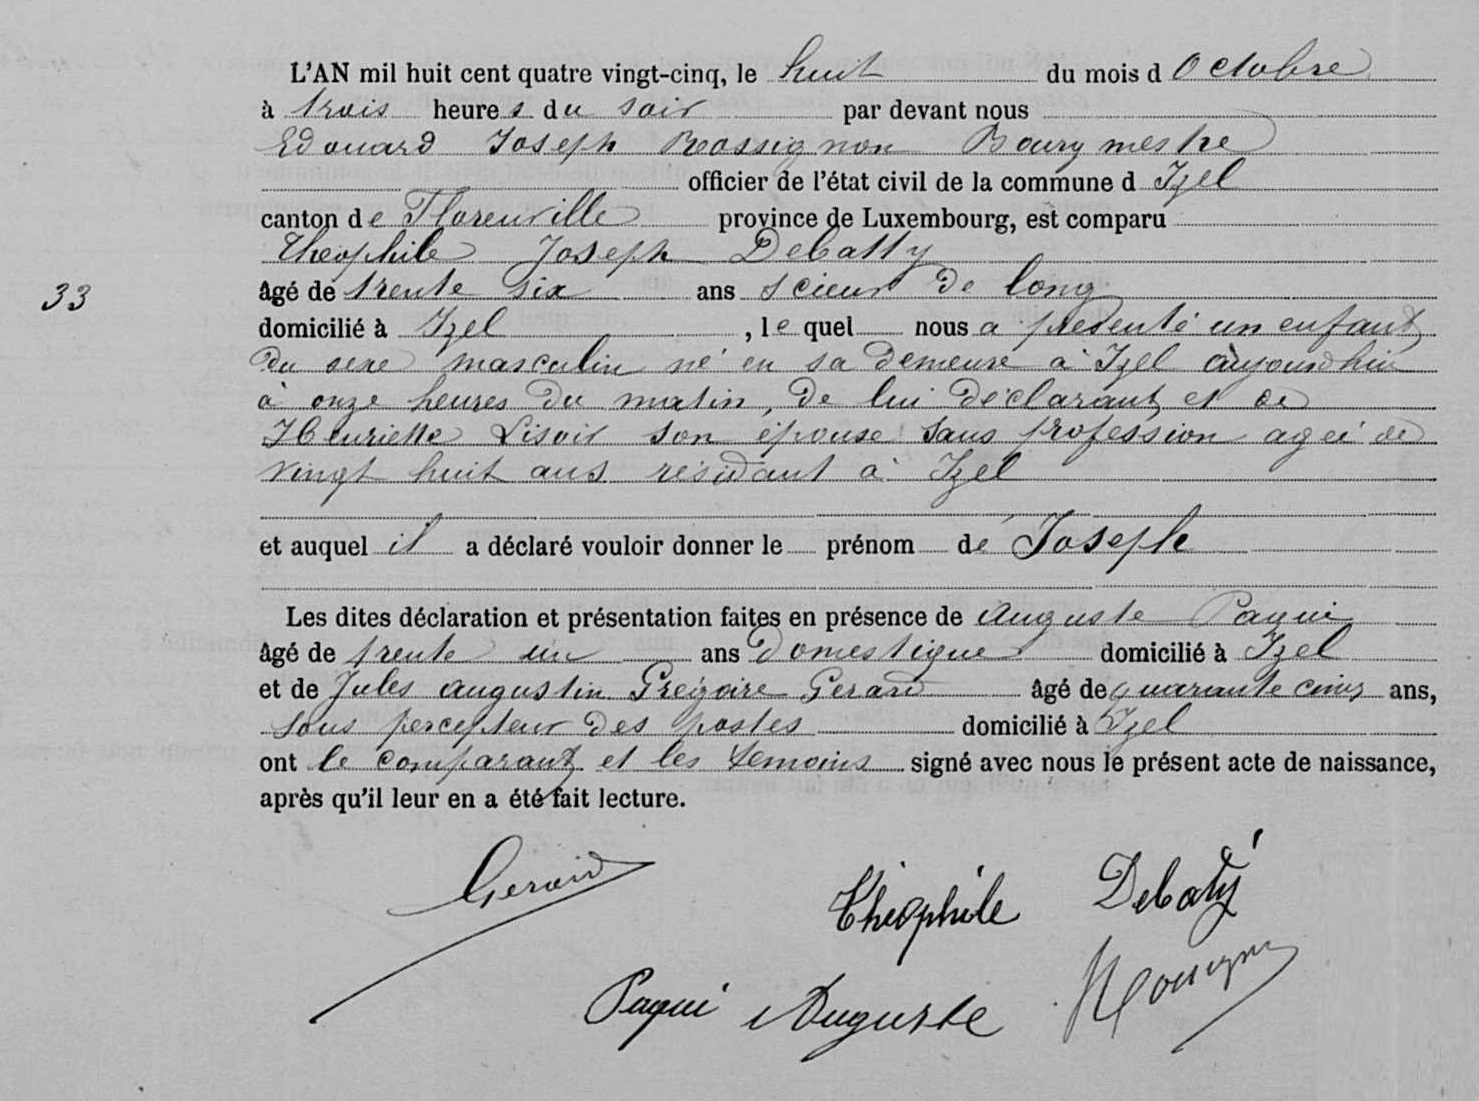 L'AN mil huit cent quatre vingt-cinq, le huit du mois d Octobre
à trois heures du soir par devant nous
Edouard Joseph Rossignon Bourgmestre
officier de l'état civil de la commune d Izel
canton de Florenville province de Luxembourg, est comparu
Théophile Joseph Debatty
33
âgé de trente six ans scieur de long
domicilié à Izel , lequel nous a présenté un enfant
du sexe masculin né en sa demeure à Izel aujourdhui
à onze heures du matin, de lui déclarant et de
Henriette Lisoir son épouse sans profession ageé de
vingt huit ans résidant à Izel
et auquel il a déclaré vouloir donner le prénom de Joseph
Les dites déclaration et présentation faites en présence de Auguste Paqui
âgé de trente un ans domestique domicilié à Izel
et de Jules Augustin Grégoire Gerard âgé de quarante cinq ans,
sous percepteur des postes domicilié à Izel
ont le comparant et les temoins signé avec nous le présent acte de naissance,
après qu'il leur en a été fait lecture.
Gerard
Théophile Debaty
Paqui Auguste Rossignon